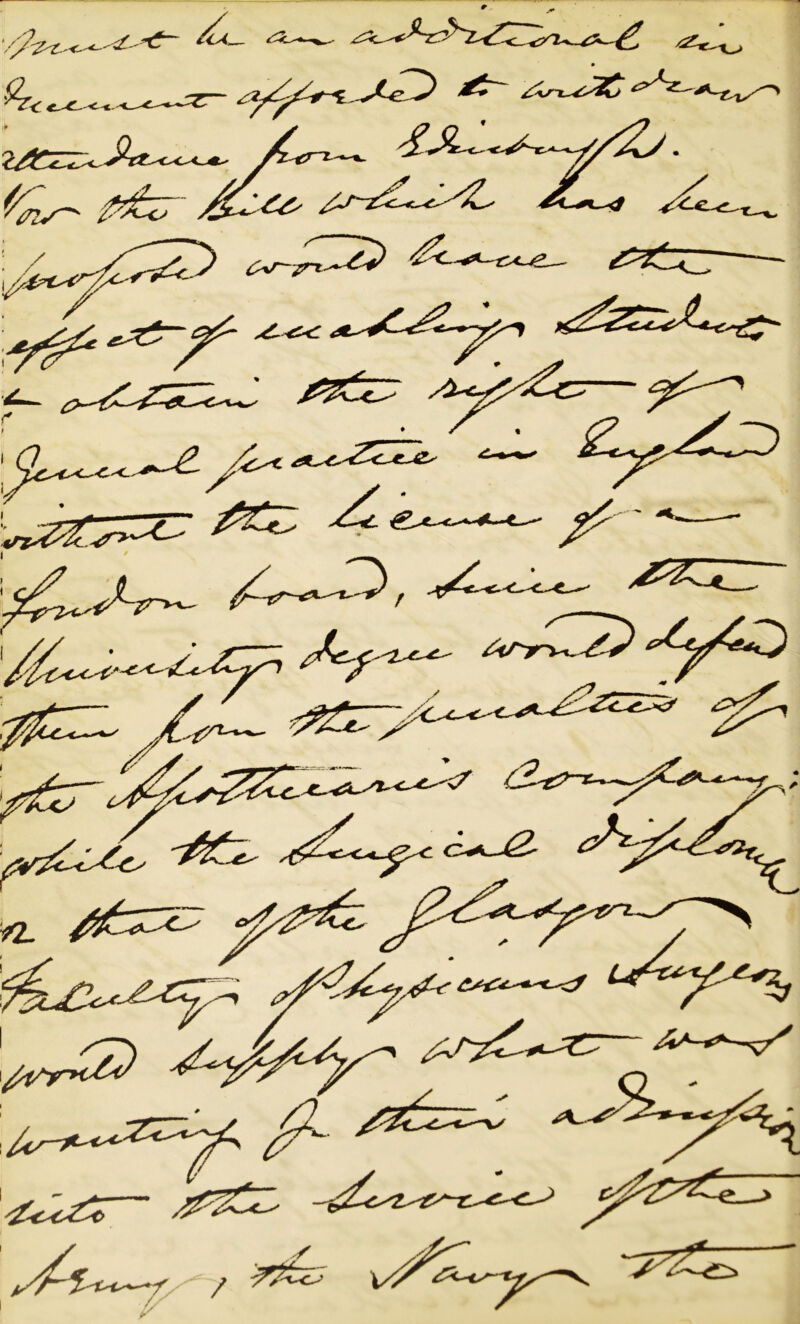 must be an additional in
ducement afforded to withdraw
attendance from Edinburgh.
Now the Bill which has been
proposed would have the
effect of enabling Students
to obtain the right of
General practice in England
without the license of a
London board, since the
University degree would defend
them from the penalties of
the Apothecaries Company:
while the Surgical diploma
or that of the Glasgow
Faculty of Physicians & Surgeons
would supply what was
wanting for their admission
into the Service of the
Army, the Navy the